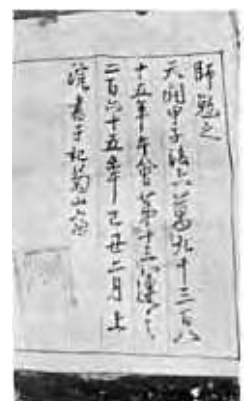 師勉之
天開甲子後六萬九千三百八
十五年午會第十三運之
二百六十五年己丑二月上
浣書于杞菊山窗